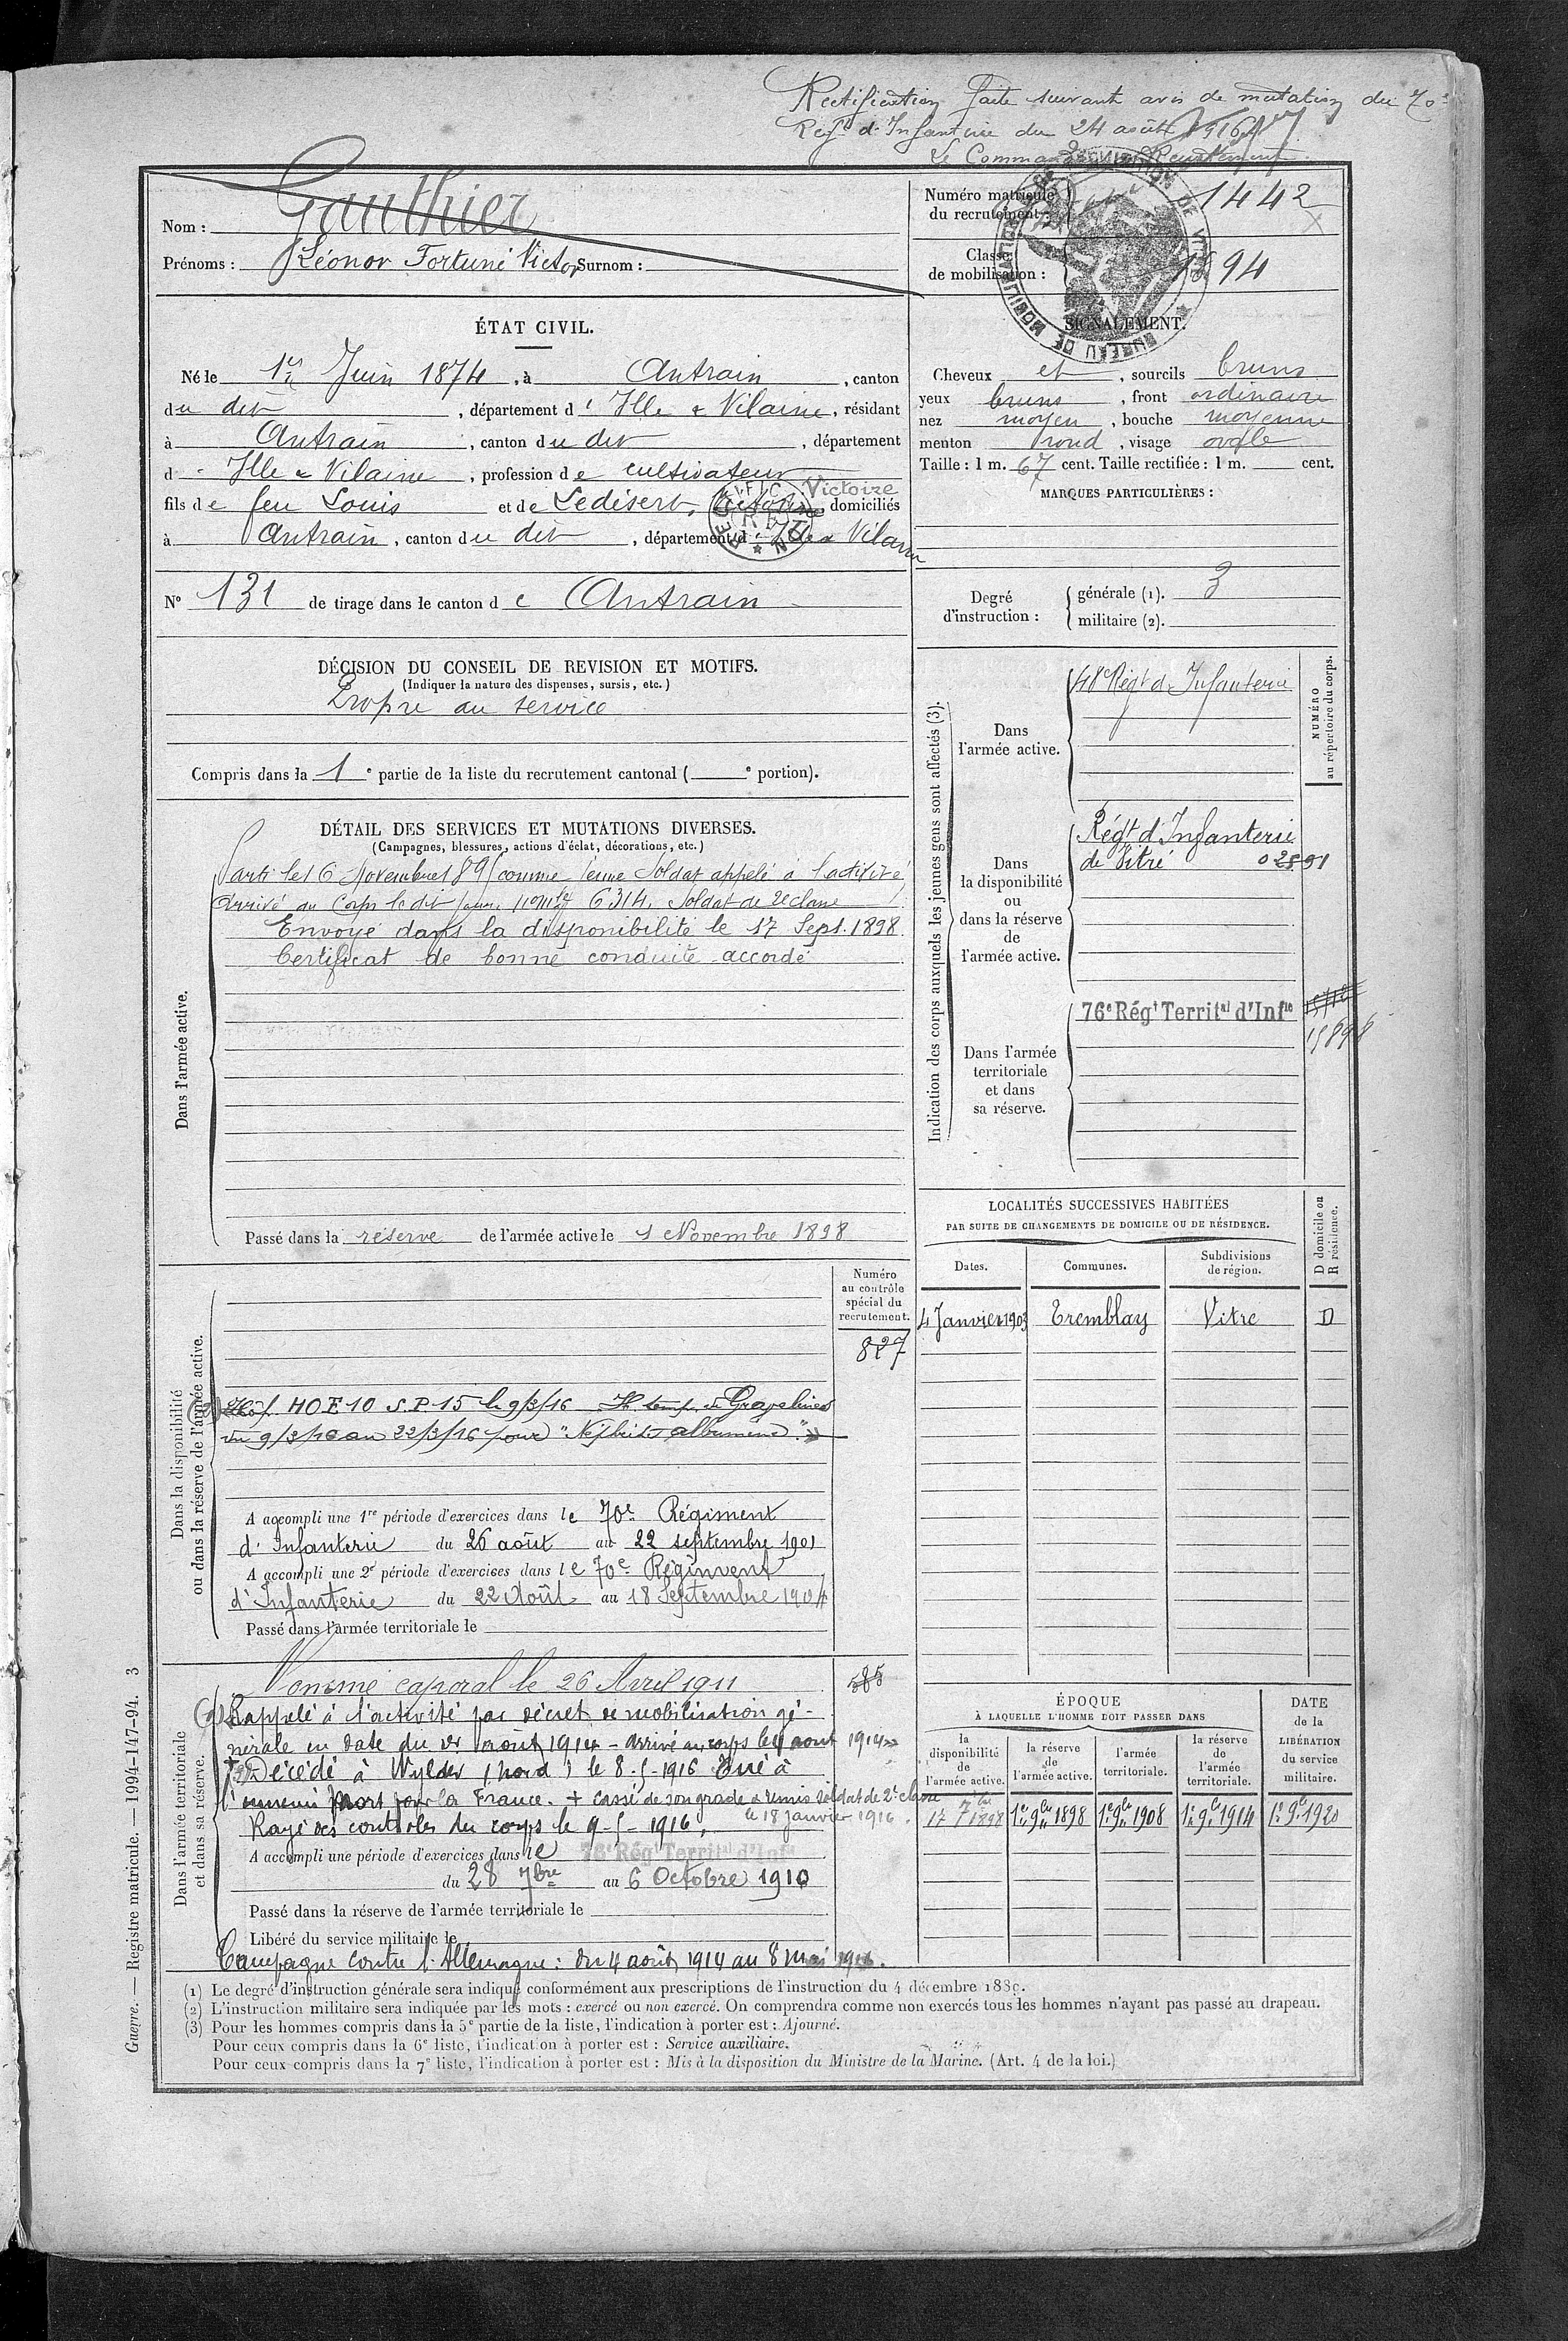 Rectification faite suivant avis de mutation du 70e
Regt d'Infanterie du 24 août 1916
Le Commandant de Recrutement
Nom : Gauthier
Prénoms : Léonor Fortuné Victor Surnom :
Numéro matricule du recrutement : 1442
Classe de mobilisation : 1894
BUREAU DE MOBILISATION DE VITRÉ
ÉTAT CIVIL.
Né le 1er Juin 1874, à Antrain, canton
du dit, département d'Ille & Vilaine, résidant
à Antrain, canton du dit, département
d'Ille & Vilaine, profession de cultivateur
fils de feu Louis et de Ledésert, Victoire domiciliés
à Antrain, canton du dit, département d'Ille & Vilaine
RECTIFICATION
N° 131 de tirage dans le canton de Antrain
SIGNALEMENT.
Cheveux et, sourcils bruns
yeux bruns, front ordinaire
nez moyen, bouche moyenne
menton rond, visage ovale
Taille : 1 m. 67 cent. Taille rectifiée : 1 m. cent.
MARQUES PARTICULIÈRES :
Degré d'instruction : générale (1). 3
militaire (2).
DÉCISION DU CONSEIL DE REVISION ET MOTIFS.
(Indiquer la nature des dispenses, sursis, etc.)
Propre au service
Compris dans la 1e partie de la liste du recrutement cantonal ( e portion).
DÉTAIL DES SERVICES ET MUTATIONS DIVERSES.
(Campagnes, blessures, actions d'éclat, décorations, etc.)
Dans l'armée active.
Parti le 16 Novembre 189 comme jeune Soldat appelé à l'activité
Arrivé au Corps le dit jour, no mle 6314, Soldat de 2e classe
Envoyé dans la disponibilité le 17 Sept. 1898
Certificat de bonne conduite accordé
Passé dans la réserve de l'armée active le 1 Novembre 1898
Indication des corps auxquels les jeunes gens sont affectés (3).
NUMÉRO au répertoire du corps.
Dans l'armée active.
48e Régt d'Infanterie
Dans la disponibilité ou dans la réserve de l'armée active.
Régt d'Infanterie
de Vitré
Dans l'armée territoriale et dans sa réserve.
76e Régt Territal d'Infie
LOCALITÉS SUCCESSIVES HABITÉES
PAR SUITE DE CHANGEMENTS DE DOMICILE OU DE RÉSIDENCE.
D domicile ou R résidence.
Dates. Communes. Subdivisions de région.
4 Janvier 1903 Tremblay Vitré D
Dans la disponibilité ou dans la réserve de l'armée active.
Numéro au contrôle spécial du recrutement.
827
(2) Hôp. HOE 10 S.P. 15 le 9/3/16 H temp. de Gravelines
du 9/3/16 au 22/3/16 pour "Néphrite albumine"
A accompli une 1re période d'exercices dans le 70e Régiment
d'Infanterie du 26 août au 22 septembre 1901
A accompli une 2e période d'exercices dans le 70e Régiment
d'Infanterie du 22 Août au 18 Septembre 1904
Passé dans l'armée territoriale le
Dans l'armée territoriale et dans sa réserve.
Nommé caporal le 26 Avril 1911
585
Rappelé à l'activité par décret de mobilisation gé-
nérale en date du 1er août 1914 - arrivé au corps le 4 août 1914
Décédé à Wylder (Nord) le 8-5-1916 Tué à
l'ennemi Mort pour la France. + cassé de son grade & remis soldat de 2e classe
Rayé des contrôles du corps le 9-5-1916, le 18 janvier 1916.
A accompli une période d'exercices dans le 76e Régt Territal d'Infie
du 28 7bre au 6 Octobre 1910
Passé dans la réserve de l'armée territoriale le
Libéré du service militaire le
Campagne contre l'Allemagne : du 4 août 1914 au 8 mai 1916.
ÉPOQUE
À LAQUELLE L'HOMME DOIT PASSER DANS
DATE de la LIBÉRATION du service militaire.
la disponibilité de l'armée active. la réserve de l'armée active. l'armée territoriale. la réserve de l'armée territoriale.
17 7bre 1898 1er 9bre 1898 1er 9bre 1908 1er 9bre 1914 1er 9bre 1920
(1) Le degré d'instruction générale sera indiqué conformément aux prescriptions de l'instruction du 4 décembre 1889.
(2) L'instruction militaire sera indiquée par les mots : exercé ou non exercé. On comprendra comme non exercés tous les hommes n'ayant pas passé au drapeau.
(3) Pour les hommes compris dans la 5e partie de la liste, l'indication à porter est : Ajourné.
Pour ceux compris dans la 6e liste, l'indication à porter est : Service auxiliaire.
Pour ceux compris dans la 7e liste, l'indication à porter est : Mis à la disposition du Ministre de la Marine. (Art. 4 de la loi.)
Guerre. — Registre matricule. — 1994-147-94. 3